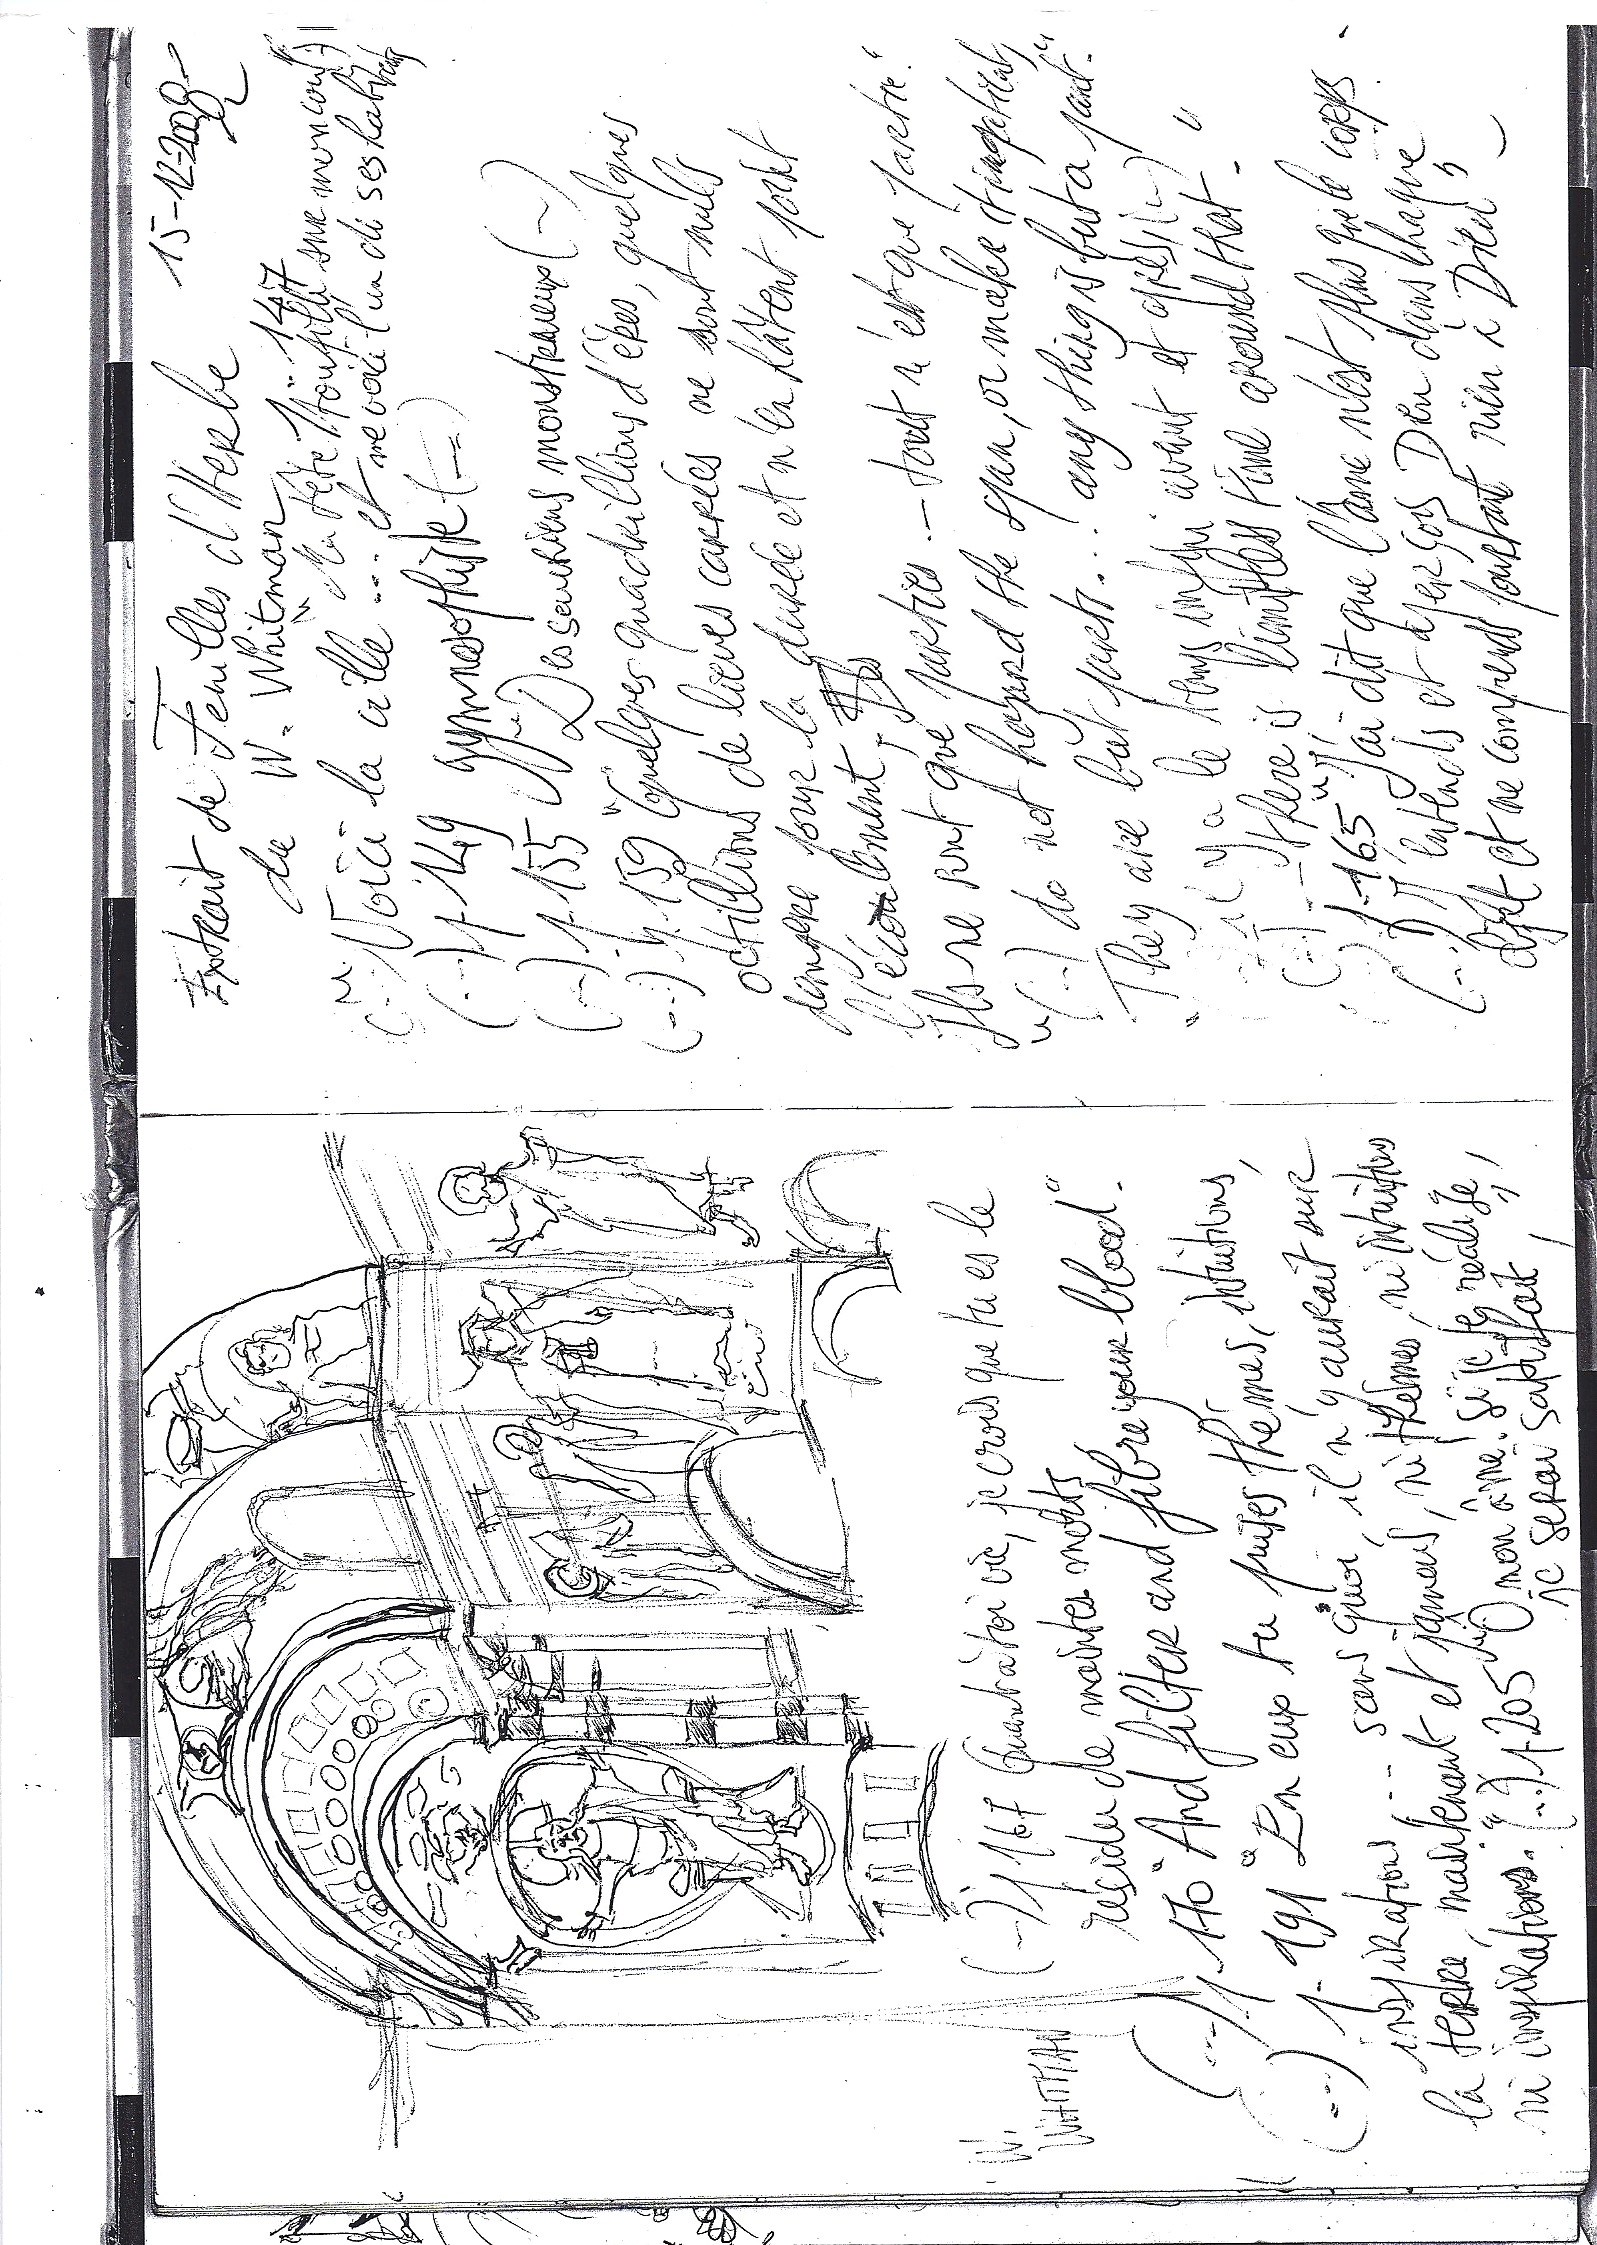 W.
WHITMAN
(--) p 167 Quant à toi vie, je crois que tu es le
résidu de maintes morts
(---) p. 170 " And filter and fibre your blood".
(---) p. 191 " En eux tu puises thèmes, intuitions,
inspirations --- sans quoi, il n'y aurait sur
la terre, maintenant et jamais, ni thèmes, ni intuitions
ni inspirations." (--) p 205 " O mon âme! si je te réalise,
je serai satisfait,
15-12-2008
Extrait de Feuilles d'Herbe
de W. Whitman
p. 147
(--) " Voici la ville ... et me voici l'un de ses habitants
(---) p 149 gymnosophiste (---)
(--) p 155 Des sauriens monstrueux (--)
(---) p. 159 " Quelques quadrillions d'ères, quelques
octillions de lieues carrées ne sont nuls
danger pour la durée et n'en hâtent point
l'écoulement,
Ils ne sont que parties -- tout n'est que partie."
" (--) do not hazard the span, or make it impatient,
They are but parts... any thing is but a part."
avant et après (--)
(--) There is limitless time around that. "
(--) p-165 " J'ai dit que l'âme n'est plus que le corps.
(---) J'entends et aperçois Dieu dans chaque
objet et ne comprends pourtant rien à Dieu,